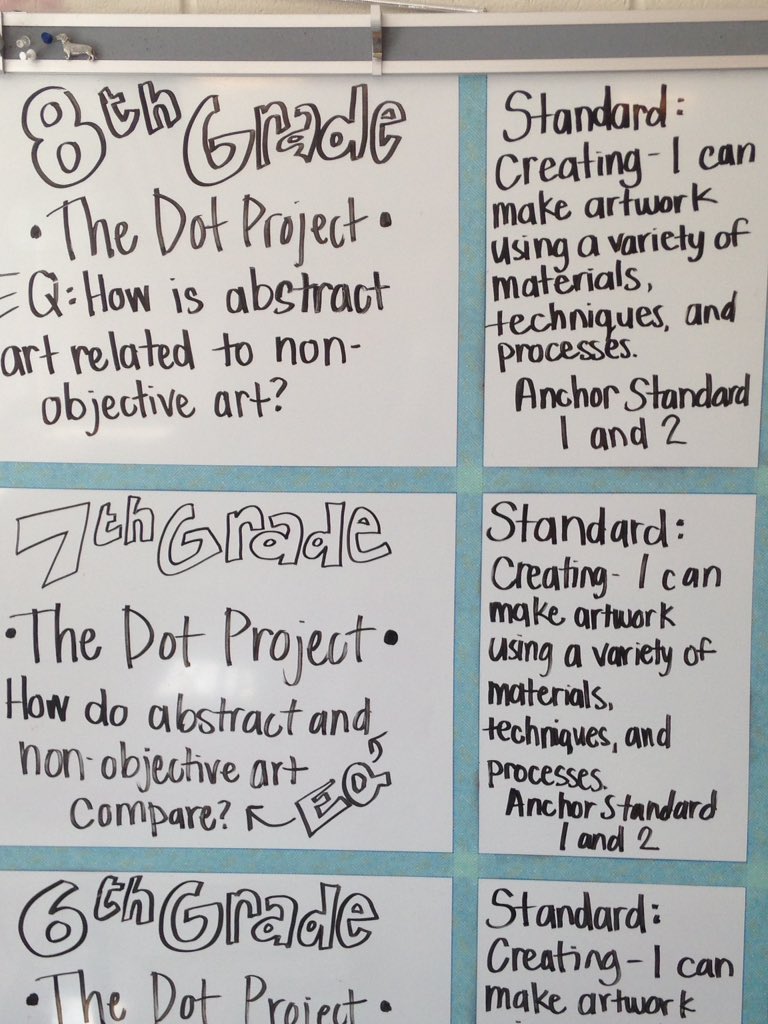 8th Grade
• The Dot Project •
EQ: How is abstract
art related to non-
objective art?
Standard:
Creating - I can
make artwork
using a variety of
materials,
techniques, and
processes.
Anchor Standard
1 and 2
7th Grade
• The Dot Project •
How do abstract and
non-objective art
Compare? EQ
Standard:
Creating - I can
make artwork
using a variety of
materials,
techniques, and
processes.
Anchor Standard
1 and 2
6th Grade
• The Dot Project •
Standard:
Creating - I can
make artwork